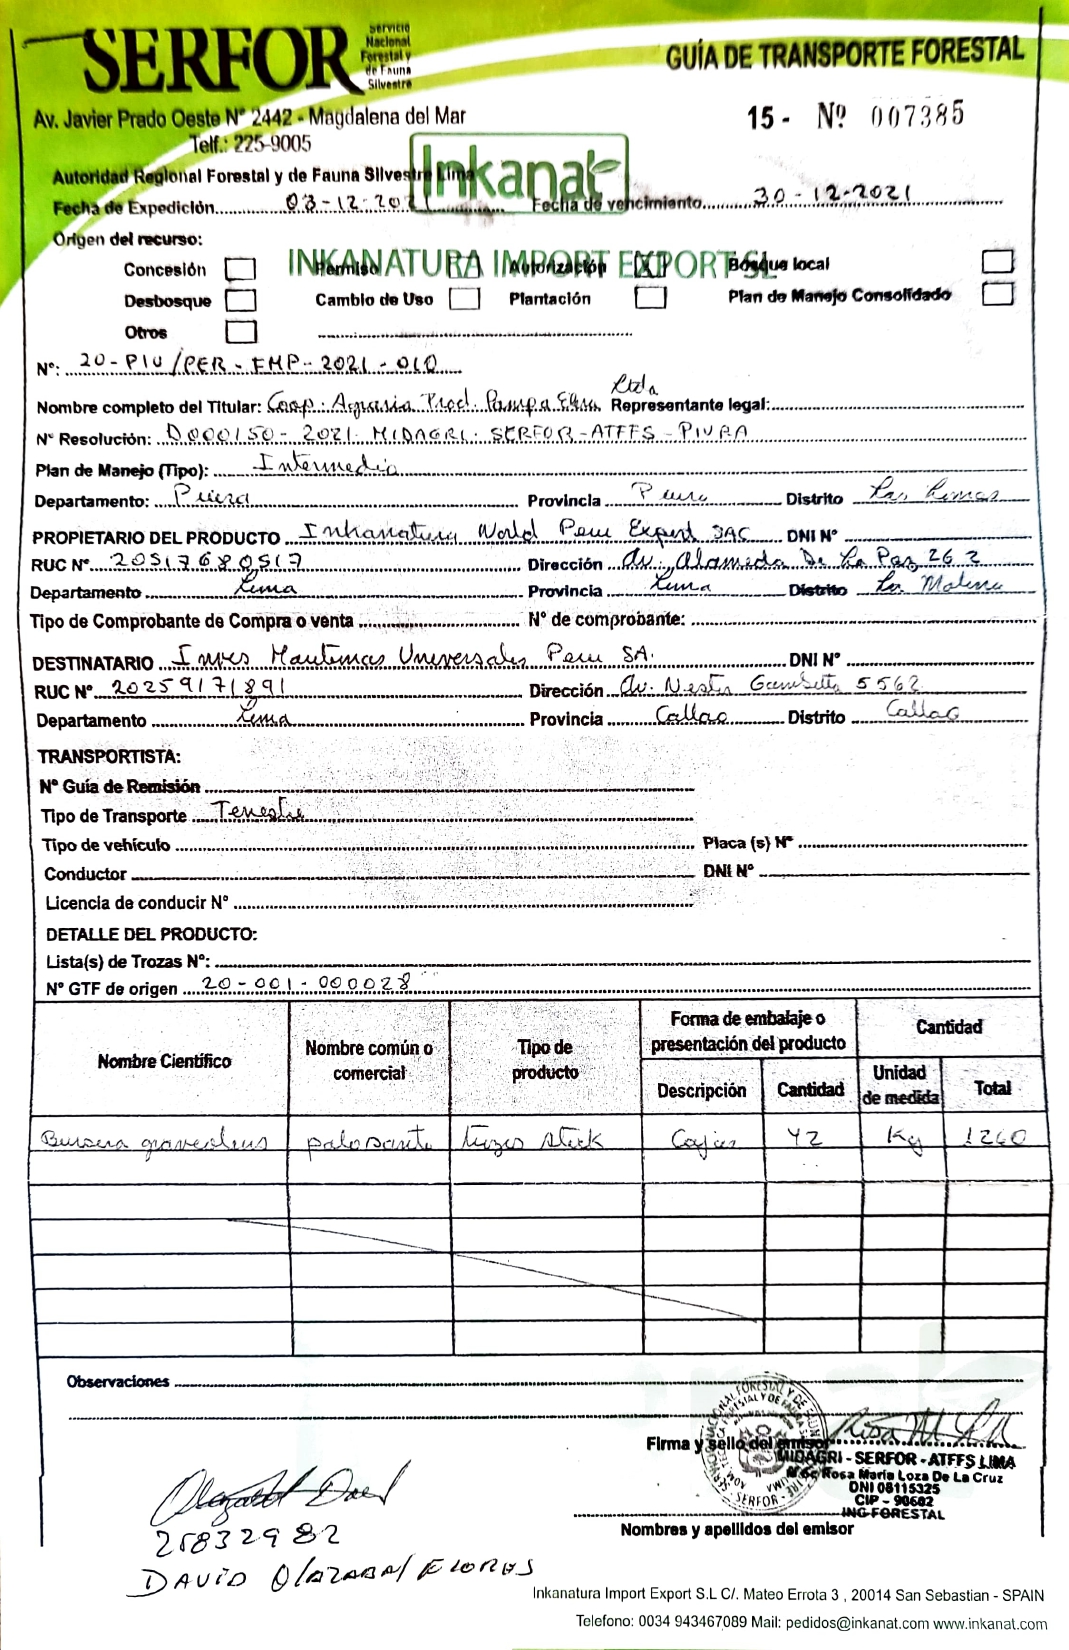 SERFOR
Servicio
Nacional
Forestal y
de Fauna
Silvestre
GUÍA DE TRANSPORTE FORESTAL
Av. Javier Prado Oeste N° 2442 - Magdalena del Mar
Telf.: 225-9005
15 - Nº 007385
Inkanat
Autoridad Regional Forestal y de Fauna Silvestre Lima
Fecha de Expedición 03-12-2021 Fecha de vencimiento 30-12-2021
Origen del recurso:
INKANATURA IMPORT EXPORT SL
Concesión Permiso Autorización Bosque local
Desbosque Cambio de Uso Plantación Plan de Manejo Consolidado
Otros
N°: 20-PIU/PER-FMP-2021-010
Nombre completo del Titular: Coop. Agraria Prod. Pampa Ltda Representante legal:
N° Resolución: D000150-2021-MIDAGRI-SERFOR-ATFFS-PIURA
Plan de Manejo (Tipo): Intermedio
Departamento: Piura Provincia Piura Distrito Las Lomas
PROPIETARIO DEL PRODUCTO Inkanatura World Peru Export SAC DNI N°
RUC N° 20517680517 Dirección Av. Alameda De La Paz 262
Departamento Lima Provincia Lima Distrito La Molina
Tipo de Comprobante de Compra o venta N° de comprobante:
DESTINATARIO Inves Maritimas Universales Peru SA. DNI N°
RUC N° 20259171891 Dirección Av. Nestor Gambetta 5562
Departamento Lima Provincia Callao Distrito Callao
TRANSPORTISTA:
N° Guía de Remisión
Tipo de Transporte Terrestre
Tipo de vehículo Placa (s) N°
Conductor DNI N°
Licencia de conducir N°
DETALLE DEL PRODUCTO:
Lista(s) de Trozas N°:
N° GTF de origen 20-001-000028
Nombre Científico Nombre común o comercial Tipo de producto Forma de embalaje o presentación del producto Cantidad
Descripción Cantidad Unidad de medida Total
Bursera graveolens palo santo trozos stick Cajas 42 Kg 1260
Observaciones
Firma y sello del emisor
MIDAGRI - SERFOR - ATFFS LIMA
Rosa María Loza De La Cruz
DNI 08115325
CIP - 90602
ING FORESTAL
Nombres y apellidos del emisor
25832982
DAVID OLAZABAL FLORES
Inkanatura Import Export S.L C/. Mateo Errota 3 , 20014 San Sebastian - SPAIN
Telefono: 0034 943467089 Mail: pedidos@inkanat.com www.inkanat.com